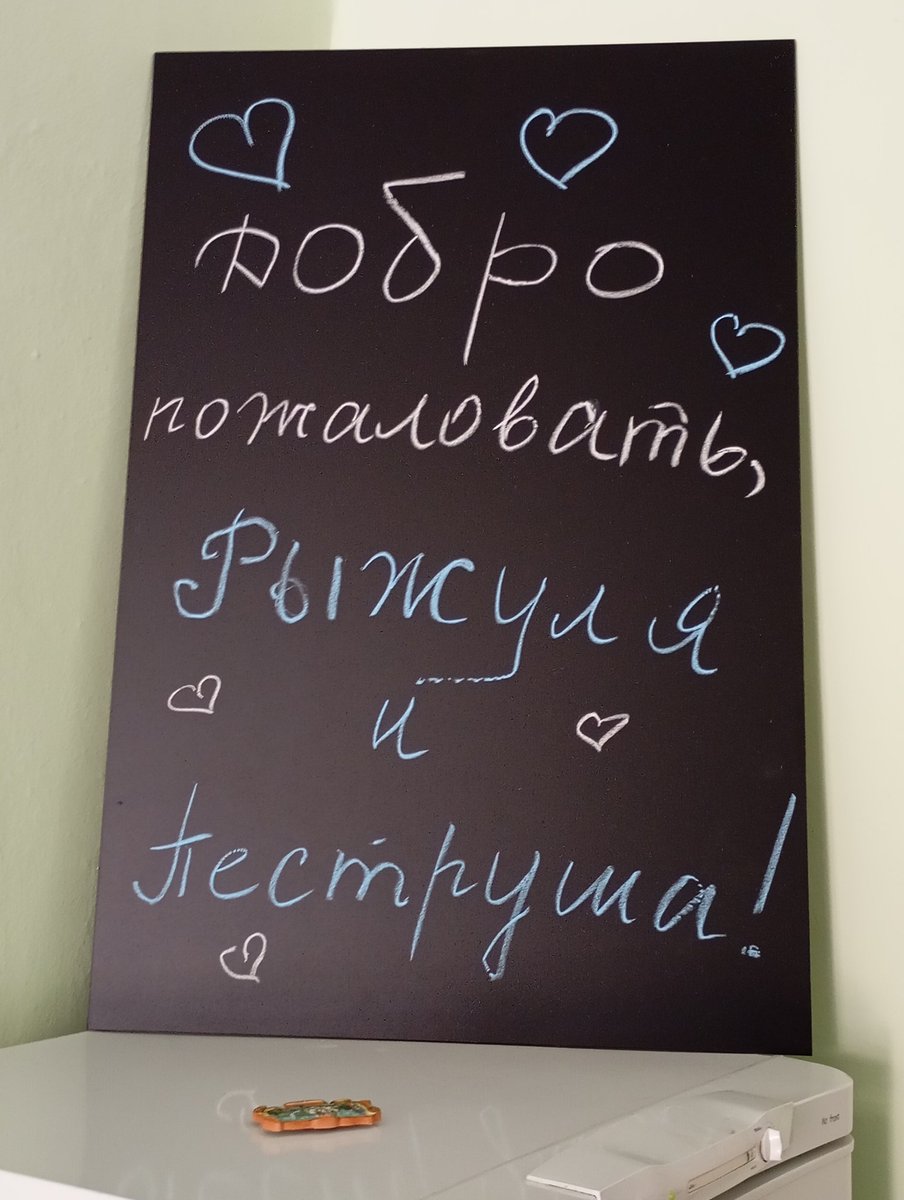 Добро
пожаловать,
Рыжуля
и
Пеструша!
No Frost